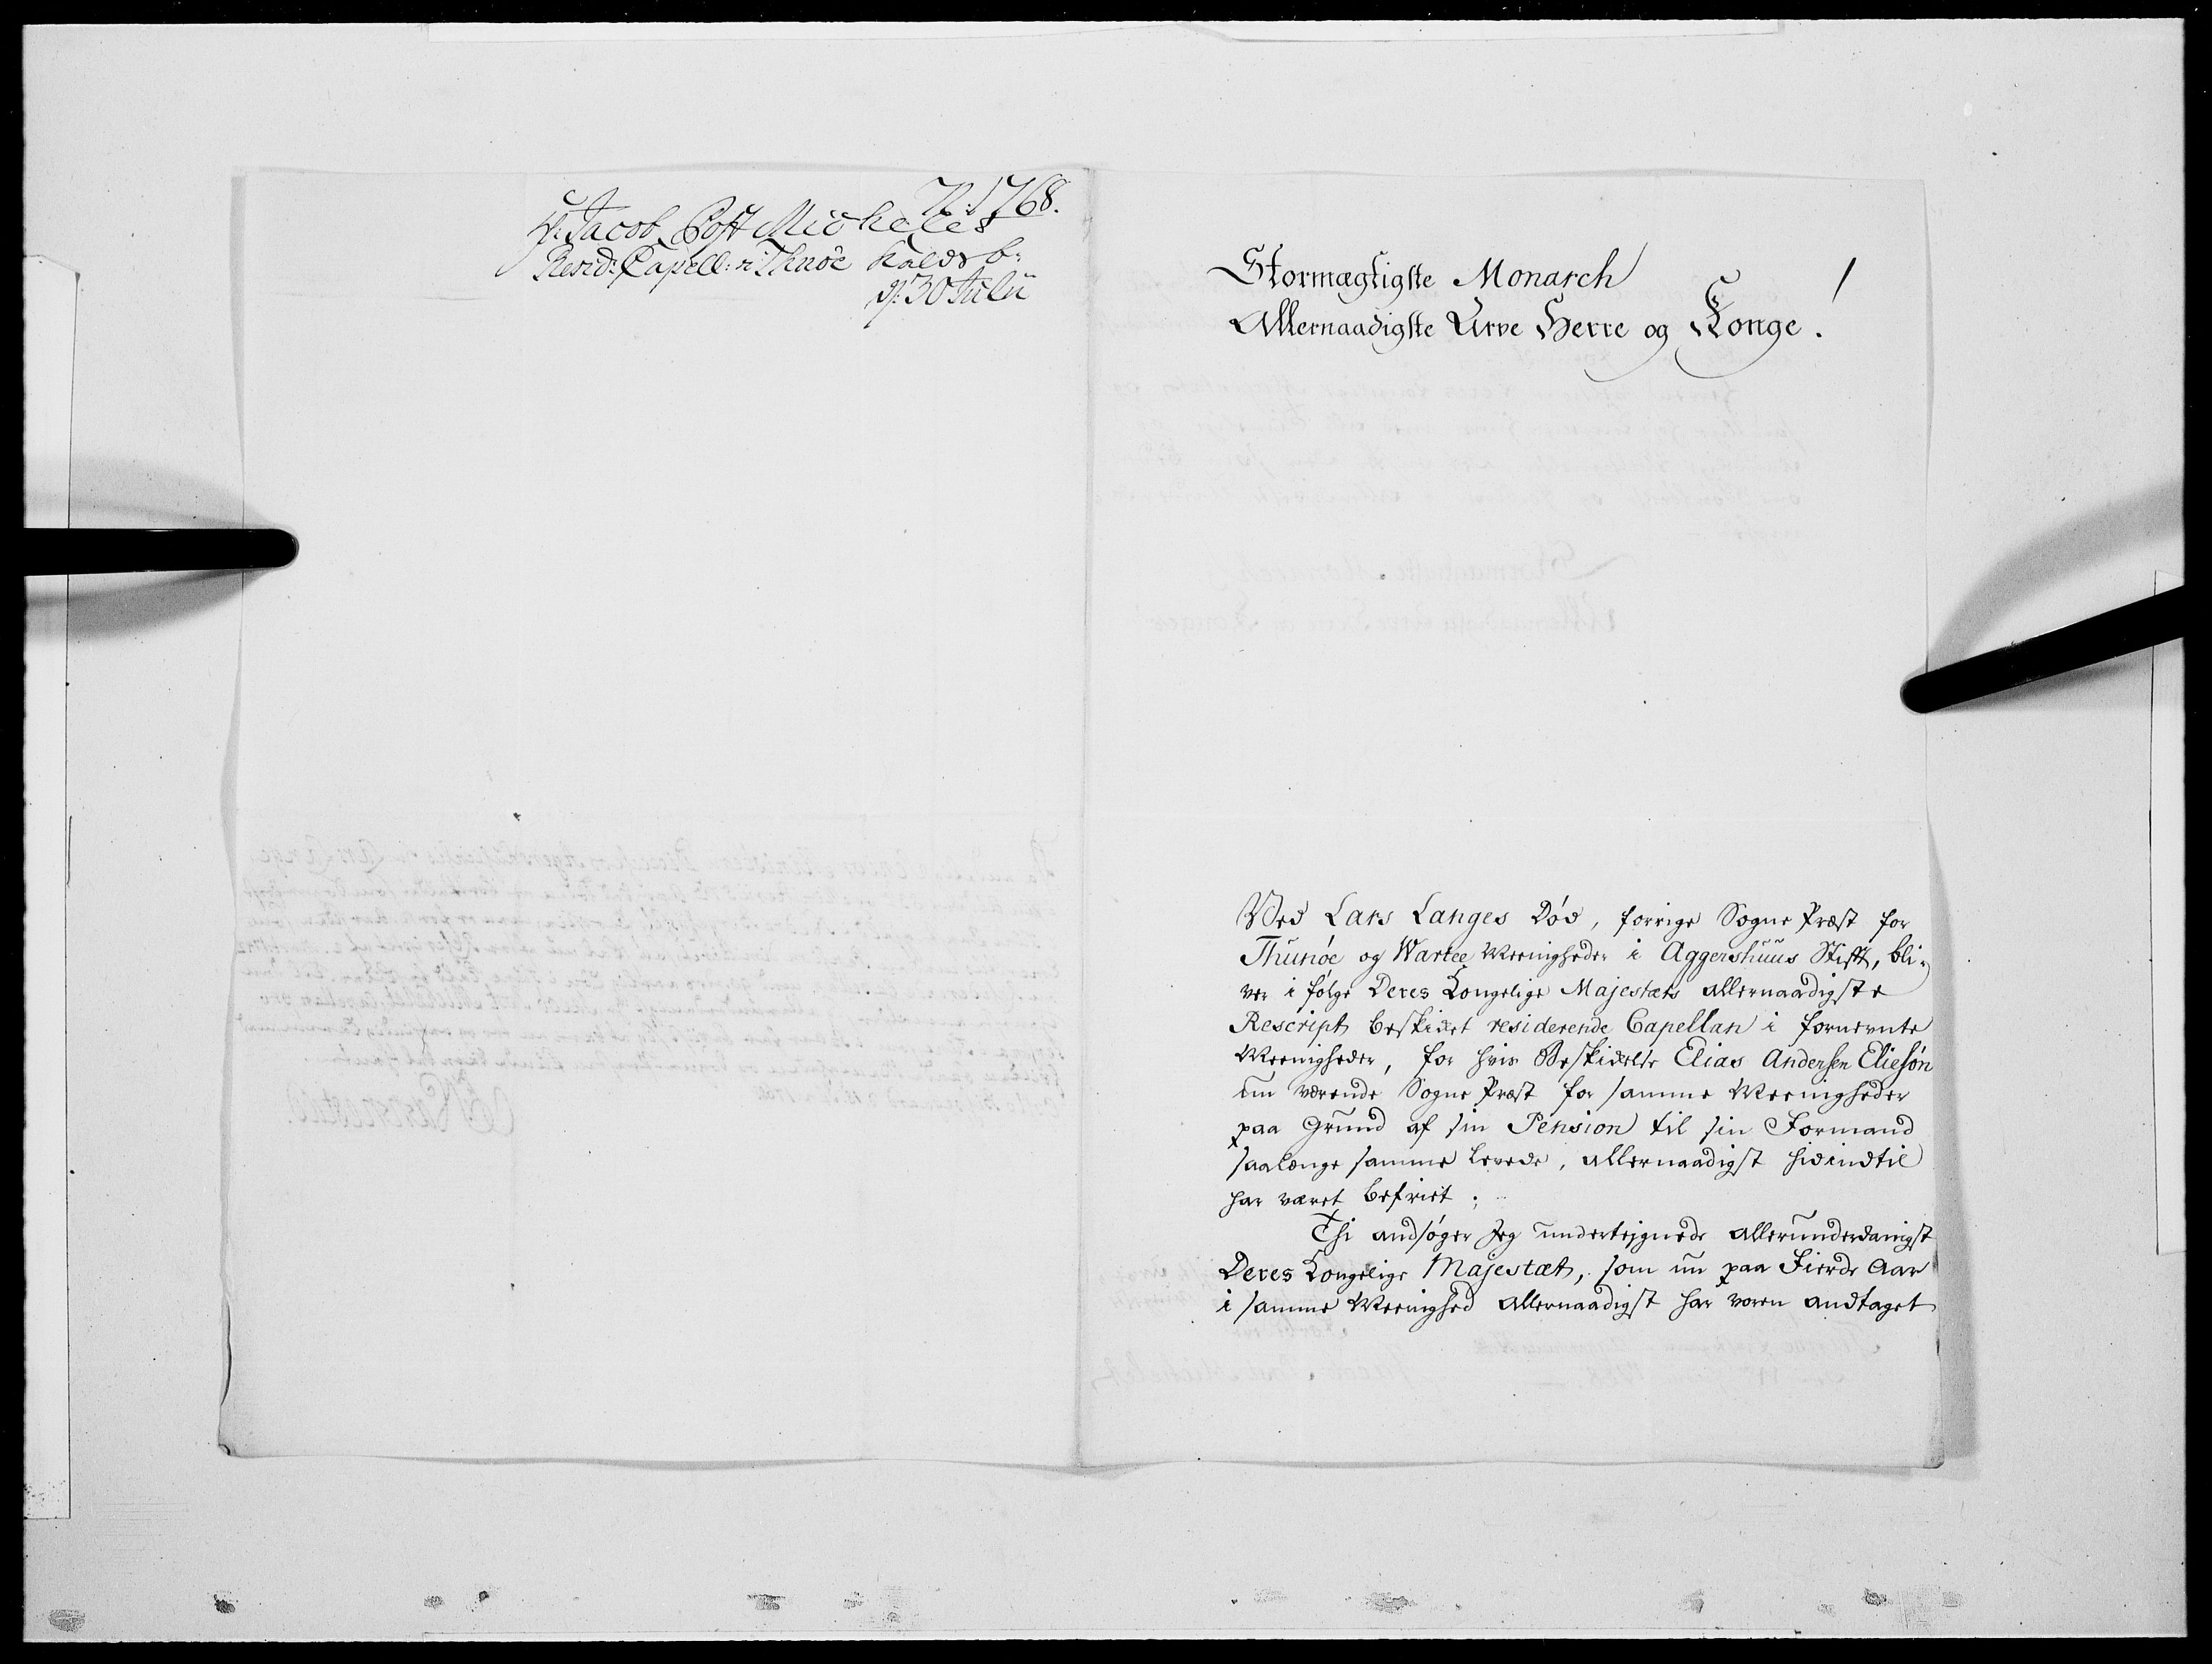 N: 1768.
H: Jacob Post Michelet
Resid: Capell: n: Thnöe Kalds b:
d: 30 Julii
Stormægtigste Monarch
Allernaadigste Arve Herre og Konge.
Ved Lars Langes Død, forrige Sogne Præst for
Thunöe og Wartee Meenigheder i Aggershuus Stift, bli-
ver i følge Deres Kongelige Majestæts allernaadigste
Rescript beskicket residerende Capellan i fornevnte
Meenigheder, for hvis Beskickelse Elias Andersen Eliesøn
nu værende Sogne Præst for samme Meenigheder
paa Grund af sin Pension til sin Formand
saalænge samme levede, allernaadigst hidindtil
har været befriet;
Thi andsøger Jeg undertejgnede allerunderdanigst
Deres Kongelige Majestæt, som nu paa Fierde Aar
i samme Meenighed allernaadigst har voren andtaget